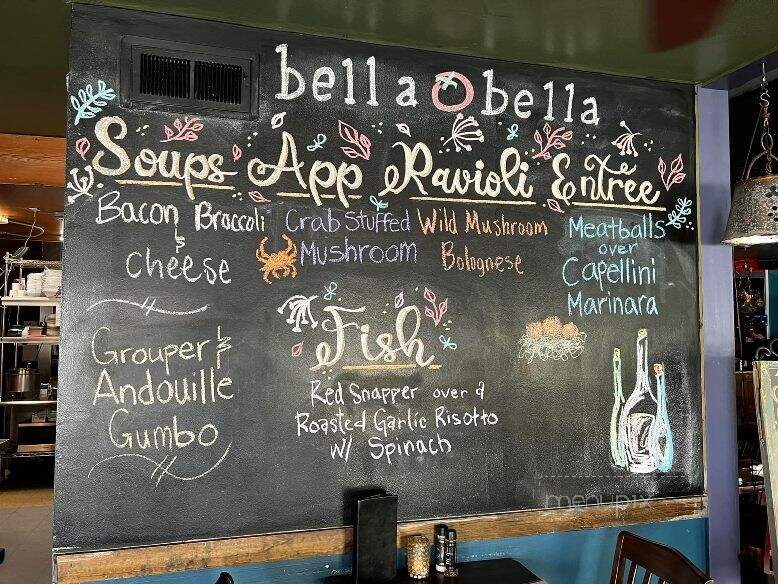 bella bella
Soups
Bacon Broccoli
&
Cheese
Grouper &
Andouille
Gumbo
App
Crab Stuffed
Mushroom
Ravioli
Wild Mushroom
Bolognese
Entree
Meatballs
over
Capellini
Marinara
Fish
Red Snapper over a
Roasted Garlic Risotto
w/ Spinach
menupix